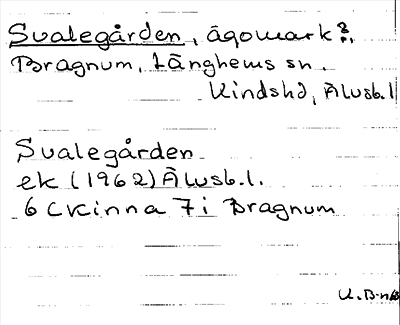 Svalegården, ägomark?,
Bragnum, Länghems sn.
Kindshd, Älvsb. l
Svalegården
ek (1962) Älvsb. l.
6 C Kinna 7 i Bragnum